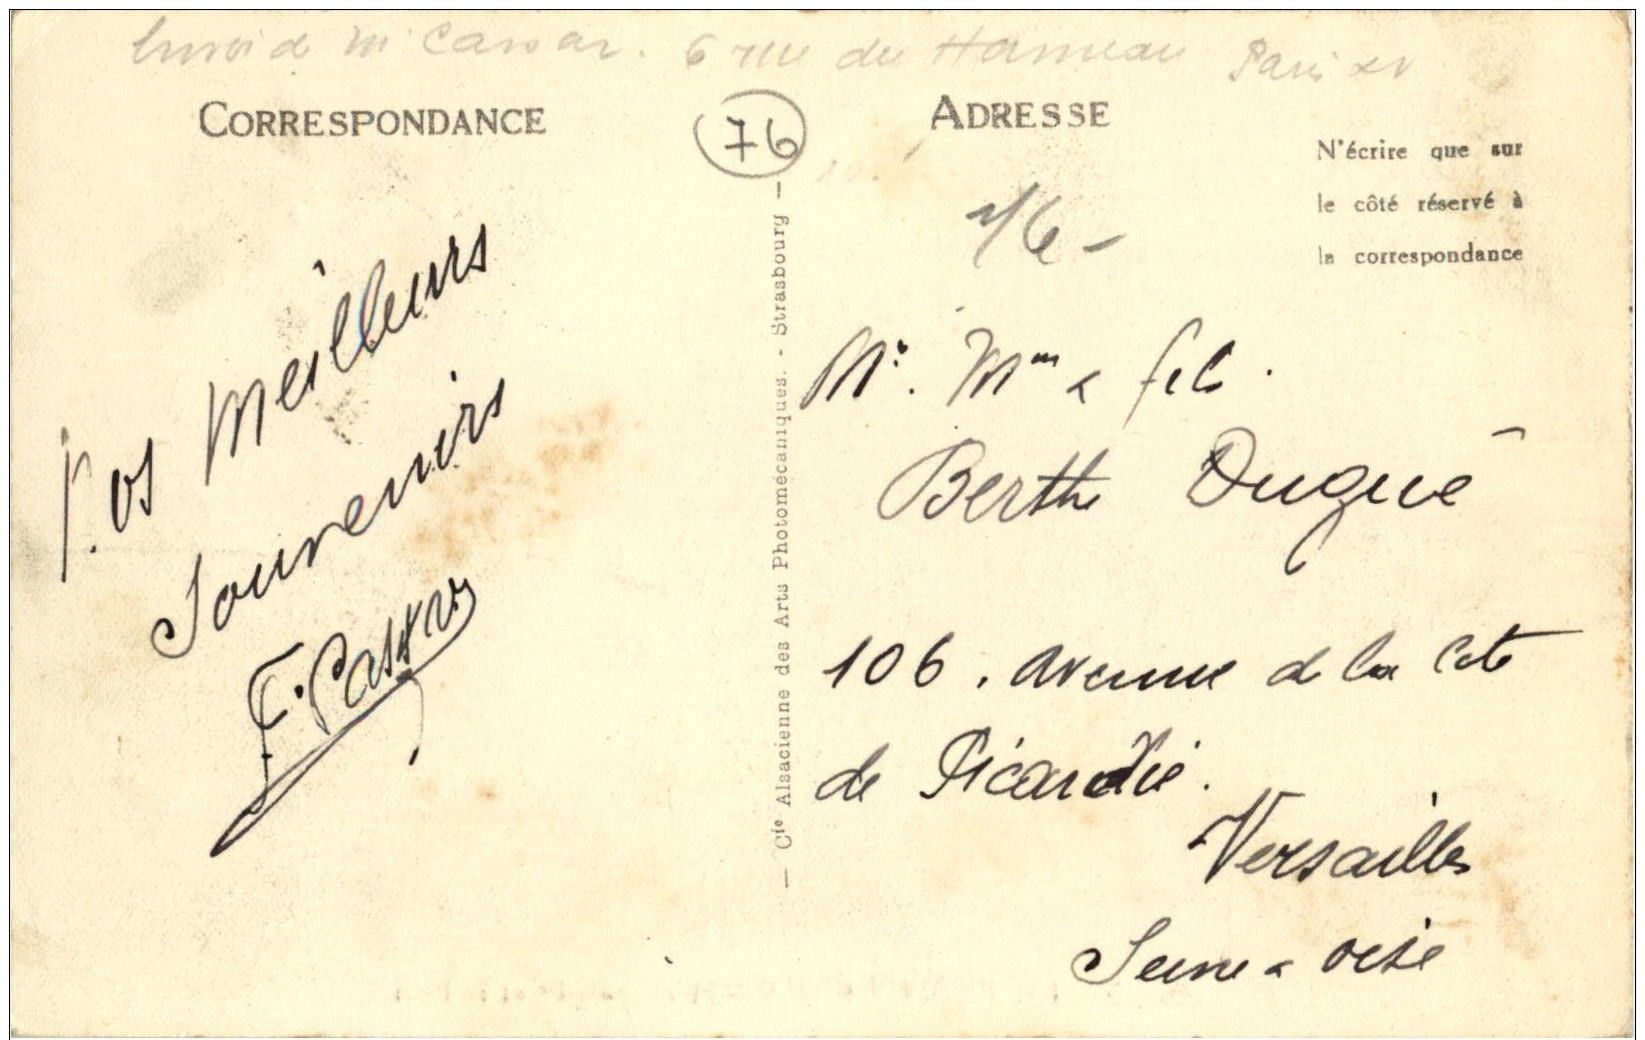 Envoi de Mr Cassar. 6 rue du Hameau Paris XV
CORRESPONDANCE
ADRESSE
76
N'écrire que sur
le côté réservé à
la correspondance
Nos Meilleurs
Souvenirs
— Cie Alsacienne des Arts Photomécaniques. - Strasbourg —
Mr. Mme & fils.
Berthe Dugué
106. Avenue de la Cote
de Picardie.
Versailles
Seine & Oise